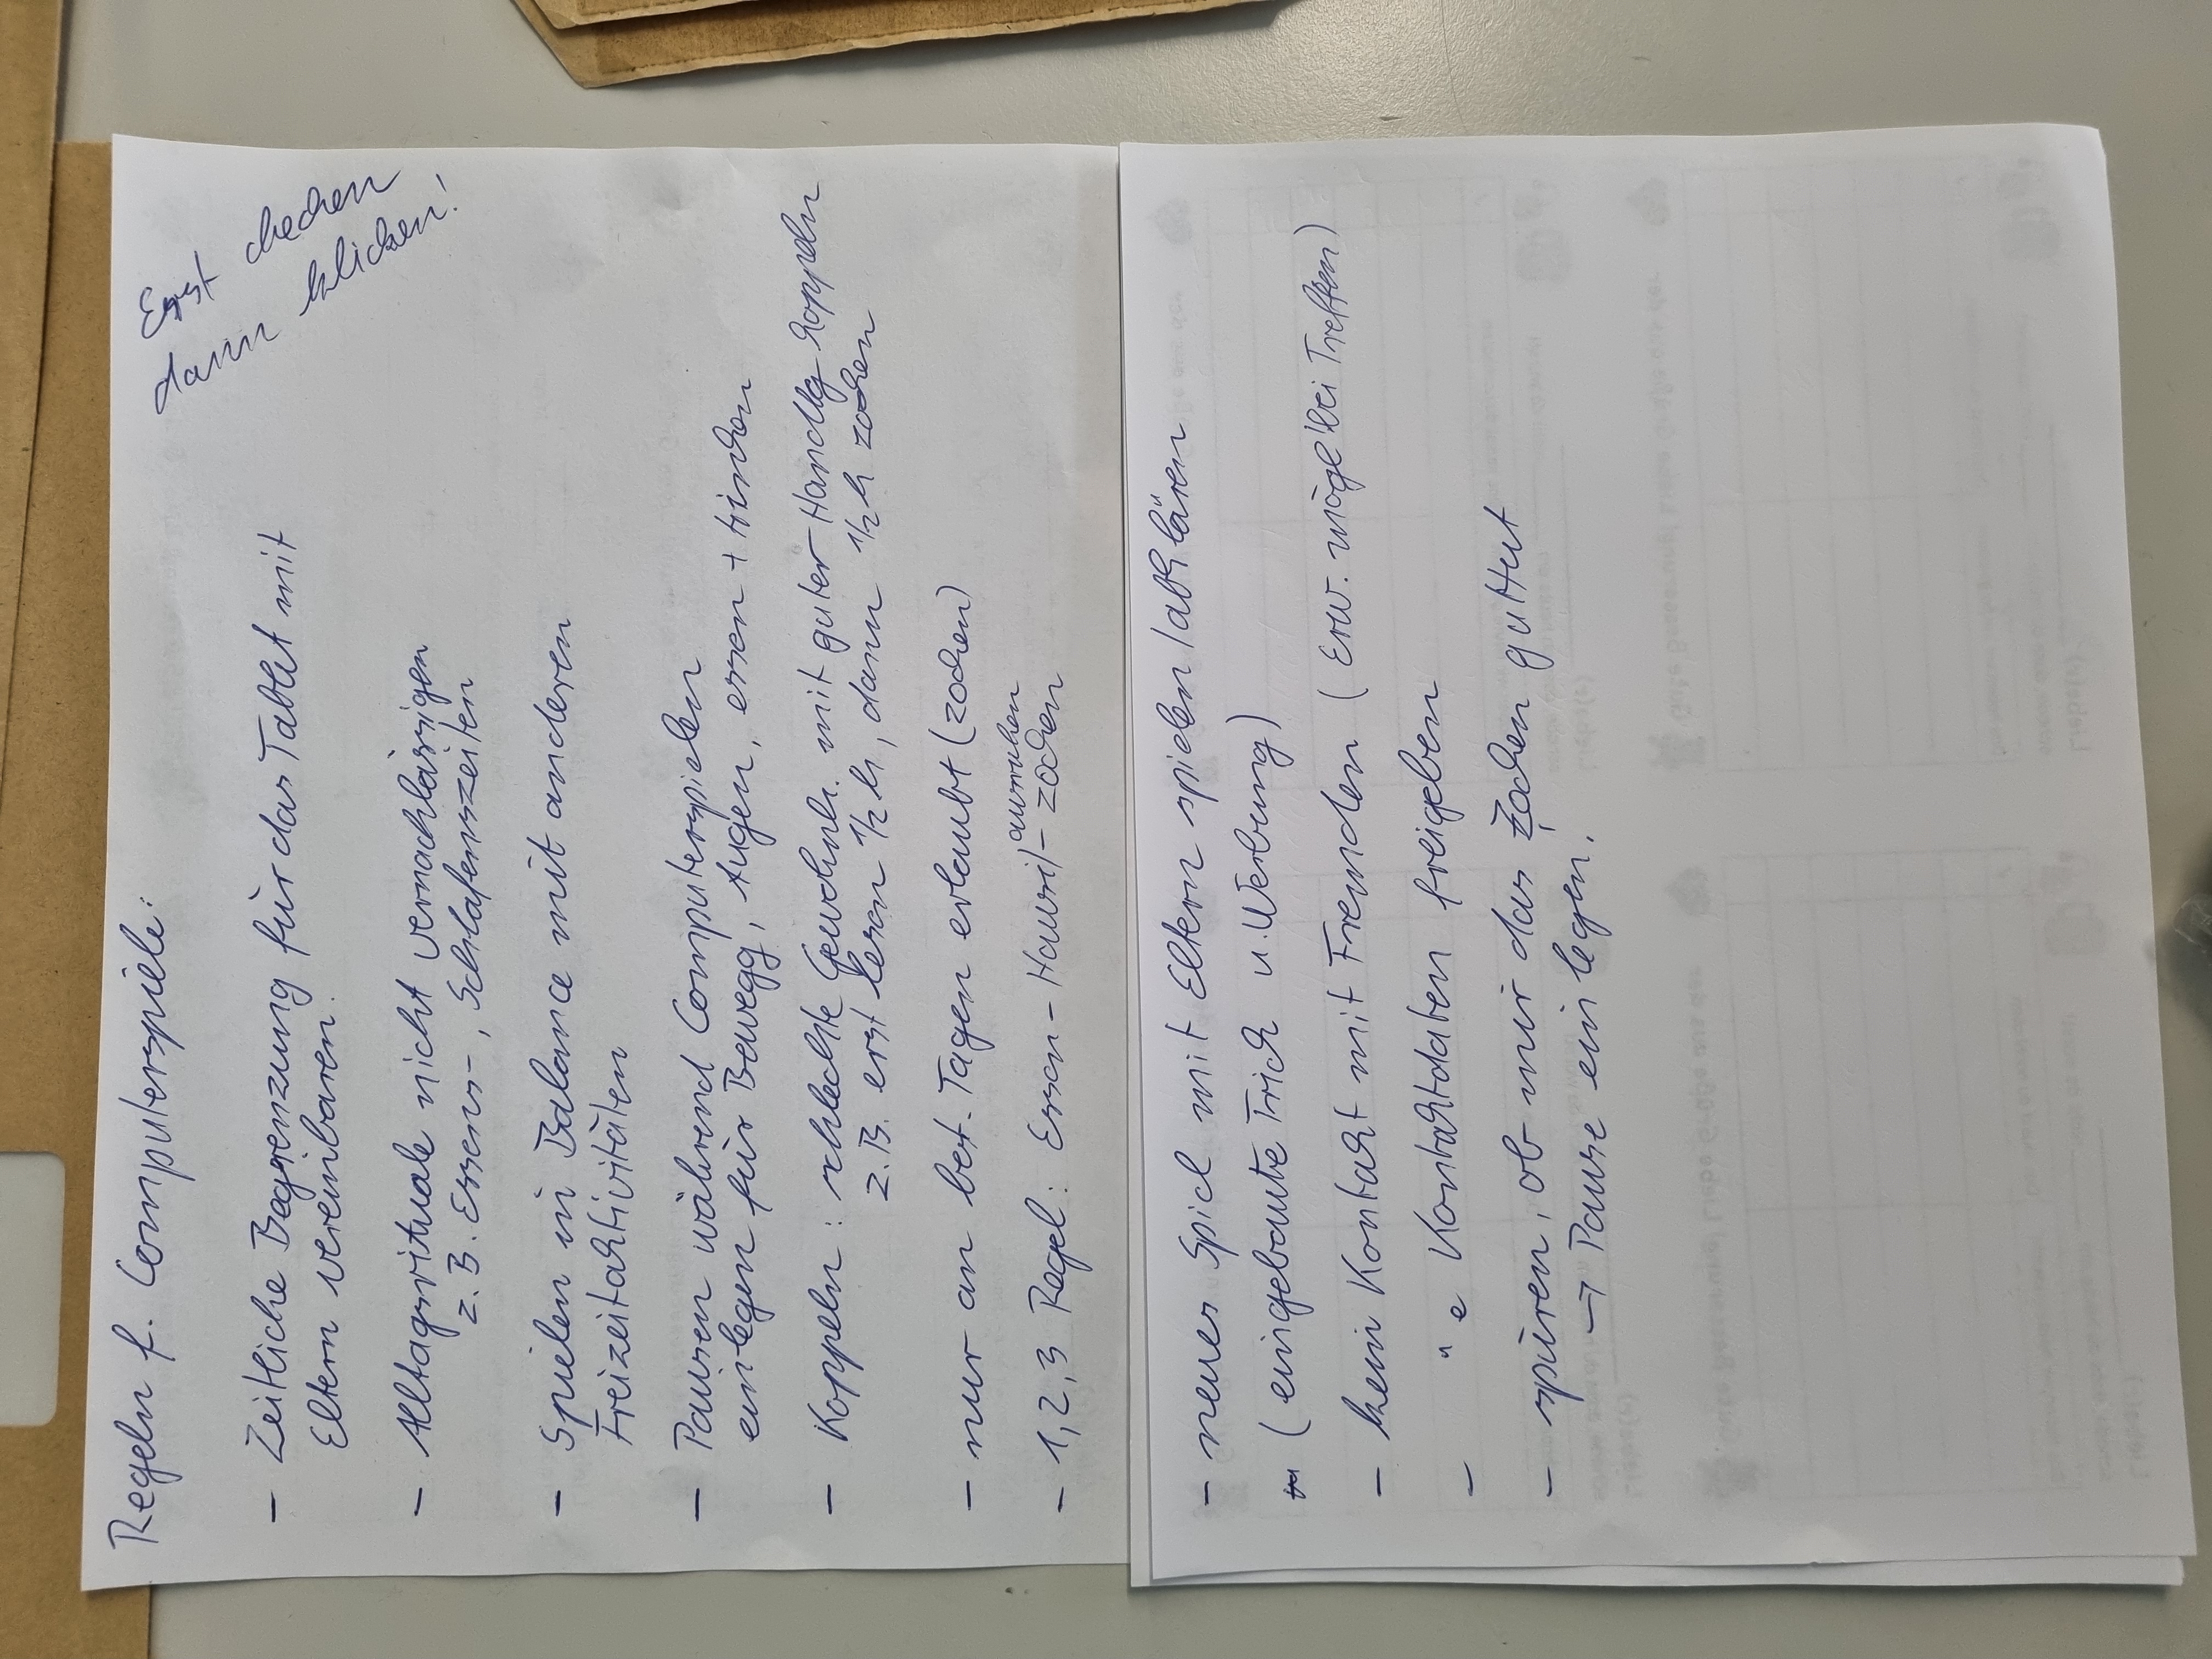 Regeln f. Computerspiele:
Erst checken
dann klicken!
- Zeitliche Begrenzung für das Tablet mit
Eltern vereinbaren.
- Alltagsrituale nicht vernachlässigen
z.B. Essens-, Schlafenszeiten
- Spielen in Balance mit anderen
Freizeitaktivitäten
- Pausen während Computerspielen
einlegen für Bewegg, Augen, essen + trinken
- Koppeln: schlechte Gewohnh. mit guter Handlg koppeln
z.B. erst lesen 1/2 h, dann 1/2 h zocken
- nur an best. Tagen erlaubt (zocken)
ausruhen
- 1, 2, 3 Regel: Essen - Hausi/- zocken
- neues Spiel mit Eltern spielen/abklären
(eingebaute Trick u. Werbung)
- kein Kontakt mit Fremden (Erw. mögl bei Treffen)
- " e Kontaktdaten freigeben
- spüren, ob mir das Zocken guttut
→ Pause einlegen.